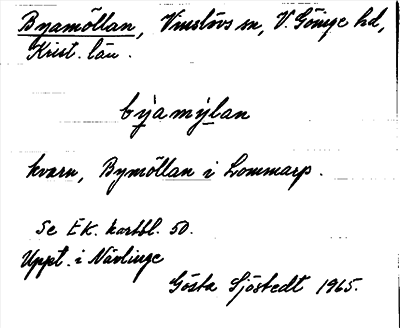 Byamöllan, Vinslövs sn, V. Göinge hd,
Krist. län.
by̍amy̍lan
kvarn, Bymöllan i Lommarp.
Se EK. kartbl. 50.
Uppt. i Nävlinge
Gösta Sjöstedt 1965.